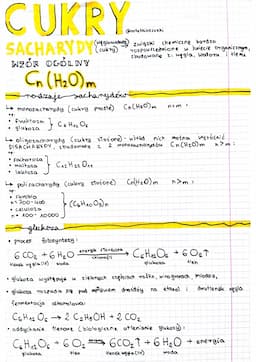 CUKRY
SACHARYDY (węglowodany, cukry)
związki chemiczne bardzo
rozpowszechnione w świecie organicznym,
zbudowane z: węgla, wodoru i tlenu
WZÓR OGÓLNY
Cn(H₂O)m
rodzaje sacharydów
↳ monosacharydy (cukry proste) Cn(H₂O)m n=m
• fruktoza
• glukoza } C₆H₁₂O₆
↳ oligosacharydy (cukry złożone)
DISACHARYDY, zbudowane z 2 monosacharydów Cn(H₂O)m n>m
• sacharoza
• maltoza
• laktoza } C₁₂H₂₂O₁₁
↳ polisacharydy (cukry złożone) Cn(H₂O)m n>m
• skrobia
• celuloza
} (C₆H₁₀O₅)n
glukoza
• proces fotosyntezy:
6 CO₂ + 6 H₂O energia słoneczna → C₆H₁₂O₆ + 6 O₂↑
tlenek węgla(IV) woda glukoza tlen
• glukoza występuje w zielonych częściach roślin, winogronach, miodzie,
• glukoza rozkłada się pod wpływem drożdży na etanol i tlenek węgla
fermentacja alkoholowa:
C₆H₁₂O₆ → 2 C₂H₅OH + 2 CO₂
• oddychanie tlenowe (biologiczne utlenianie glukozy):
C₆H₁₂O₆ + 6 O₂ → 6CO₂↑ + 6 H₂O + energia
glukoza tlen tlenek węgla(IV) woda